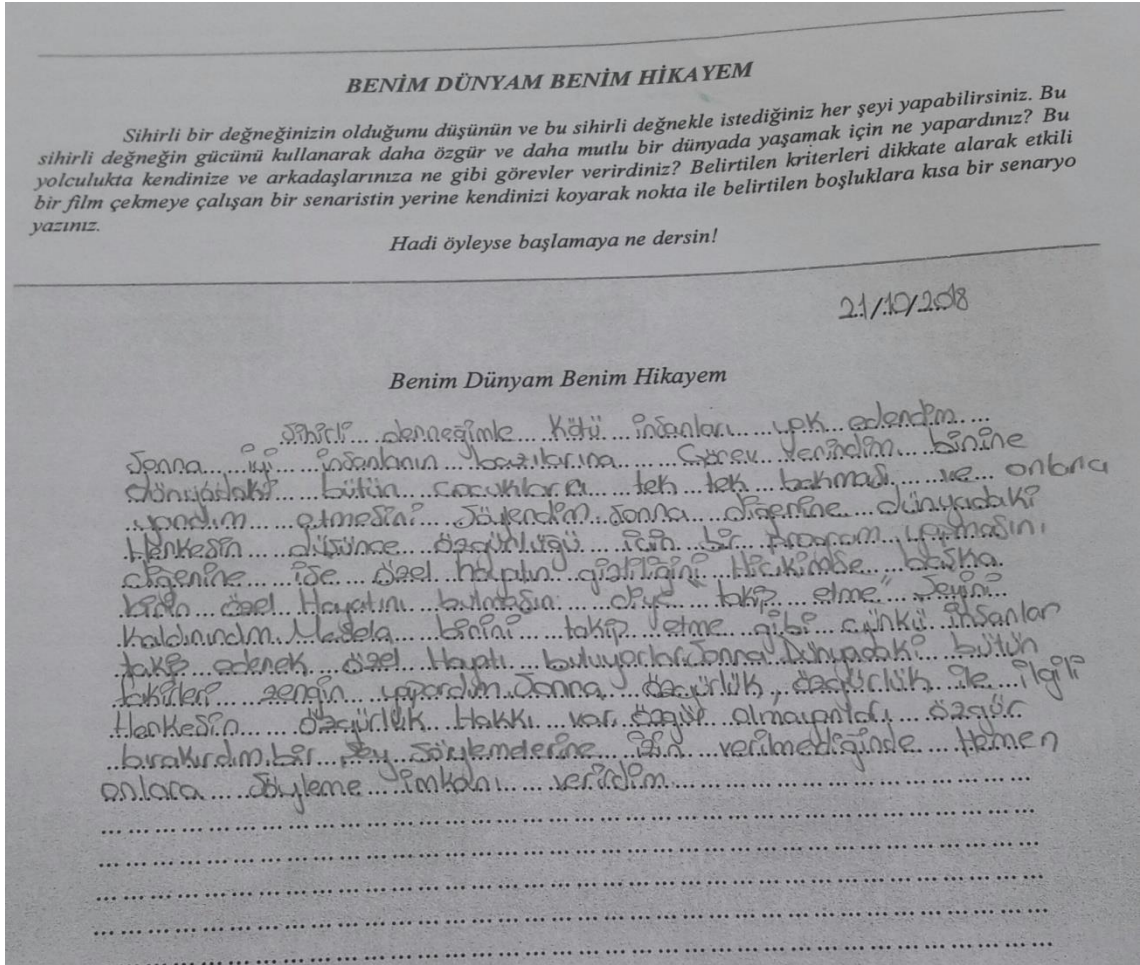 BENİM DÜNYAM BENİM HİKAYEM
Sihirli bir değneğinizin olduğunu düşünün ve bu sihirli değnekle istediğiniz her şeyi yapabilirsiniz. Bu
sihirli değneğin gücünü kullanarak daha özgür ve daha mutlu bir dünyada yaşamak için ne yapardınız? Bu
yolculukta kendinize ve arkadaşlarınıza ne gibi görevler verirdiniz? Belirtilen kriterleri dikkate alarak etkili
bir film çekmeye çalışan bir senaristin yerine kendinizi koyarak nokta ile belirtilen boşluklara kısa bir senaryo
yazınız.
Hadi öyleyse başlamaya ne dersin!
21/10/2018
Benim Dünyam Benim Hikayem
Sihirli denneğimle Kötü insanları yok edendim
Sonna iyi insanlanın bazılarına Görev verindim binine
dünyadaki bütün çocuklara tek tek bakması ve onlana
yandım etmesini söylendim. Sonna diğenine dünyadaki
Henkesin düşünce özgünlüğü için bir program yapmasını
diğenine ise özel hayatın gizliliğini Hickimse başka
binin özel Hayatını bulmasın diye "takip etme" şeyini
kaldınındım. Mesela binini takip etme gibi çünkü insanlar
takip edenek özel Hayatı buluyorlar. Sonna Dünyadaki bütün
fakirleri zengin yapardım. Sonna özgürlük, özgürlük ile ilgili
Henkesin özgürlük Hakkı var özgür olmayanları özgür
bırakırdım. bir şey söylemelerine izin verilmediğinde Hemen
onlara söyleme imkanı verirdim